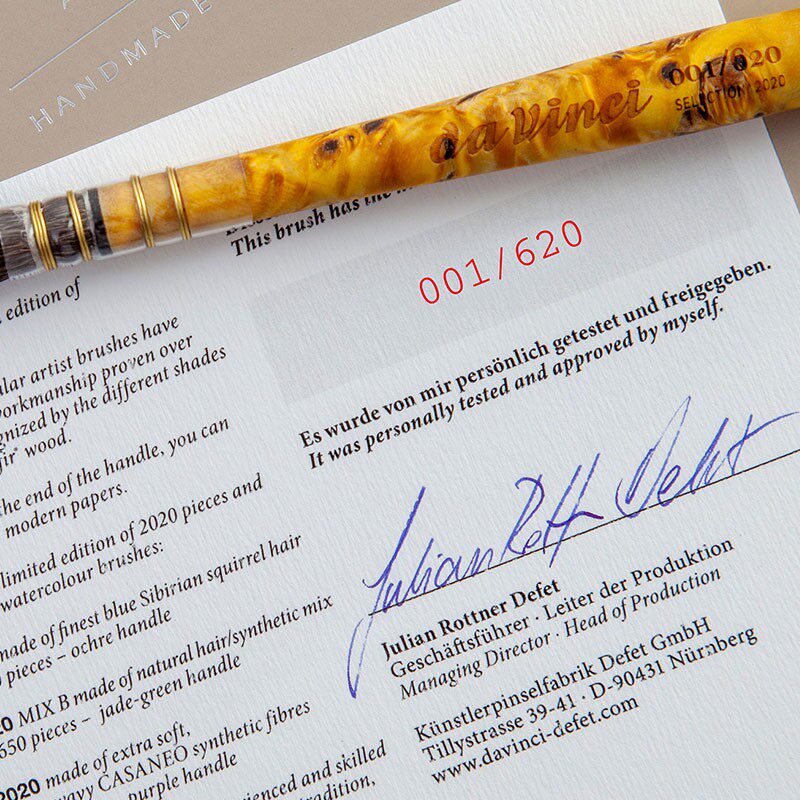 HANDMADE
da Vinci
001/620
SELECTION 2020
This brush has the
001/620
Es wurde von mir persönlich getestet und freigegeben.
It was personally tested and approved by myself.
Julian Rottner Defet
Julian Rottner Defet
Geschäftsführer · Leiter der Produktion
Managing Director · Head of Production
Künstlerpinselfabrik Defet GmbH
Tillystrasse 39-41 · D-90431 Nürnberg
www.davinci-defet.com
edition of
artist brushes have
proven over
by the different shades
wood.
end of the handle, you can
modern papers.
limited edition of 2020 pieces and
watercolour brushes:
made of finest blue Sibirian squirrel hair
pieces – ochre handle
MIX B made of natural hair/synthetic mix
650 pieces – jade-green handle
2020 made of extra soft,
CASANEO synthetic fibres
purple handle
and skilled